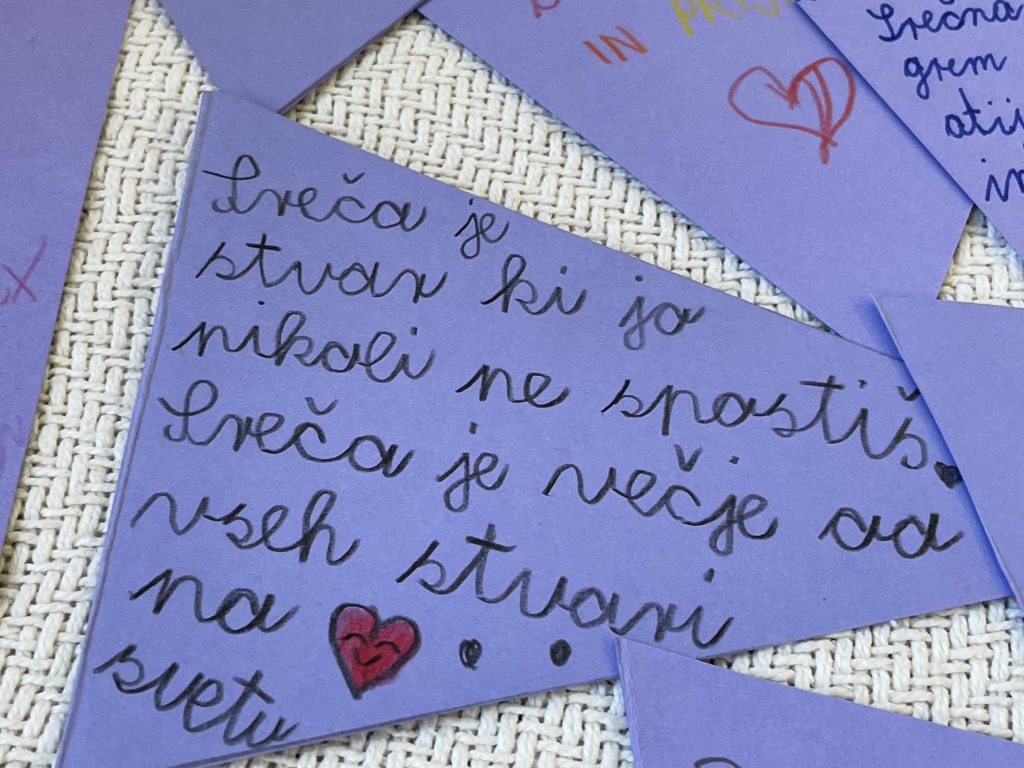 IN
Srečna
grem
in
Sreča je
stvar ki jo
nikoli ne spostiš.
Sreča je večje od
vseh stvari
na
svetu